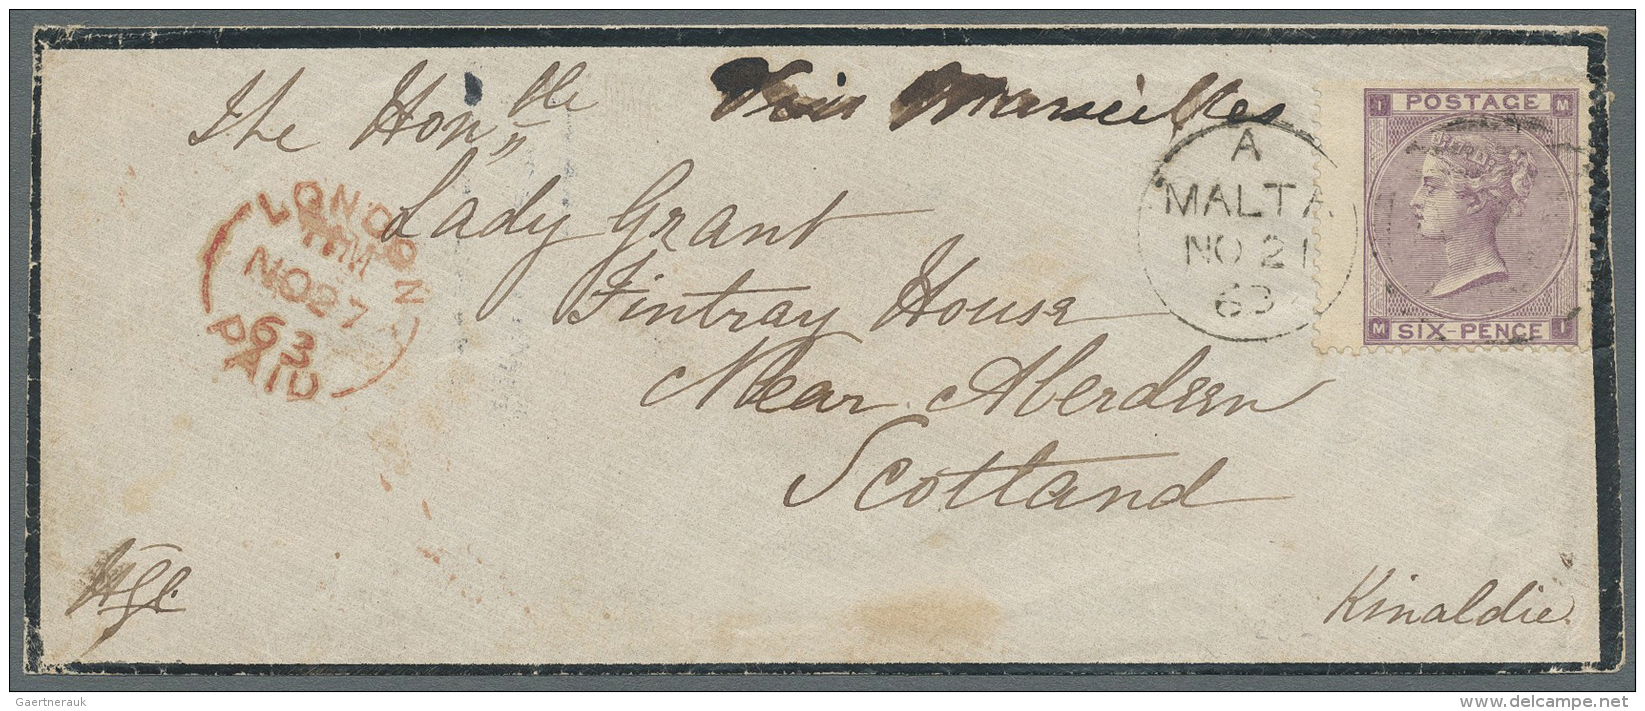 The Honble Via Marseilles
Lady Grant
Fintray House
Near Aberdeen
Scotland
Kinaldie
LONDON
NO 27
63
PAID
A
MALTA
NO 21
63
I POSTAGE M
M SIX-PENCE I
Gaertnerauk
www.delcampe.net